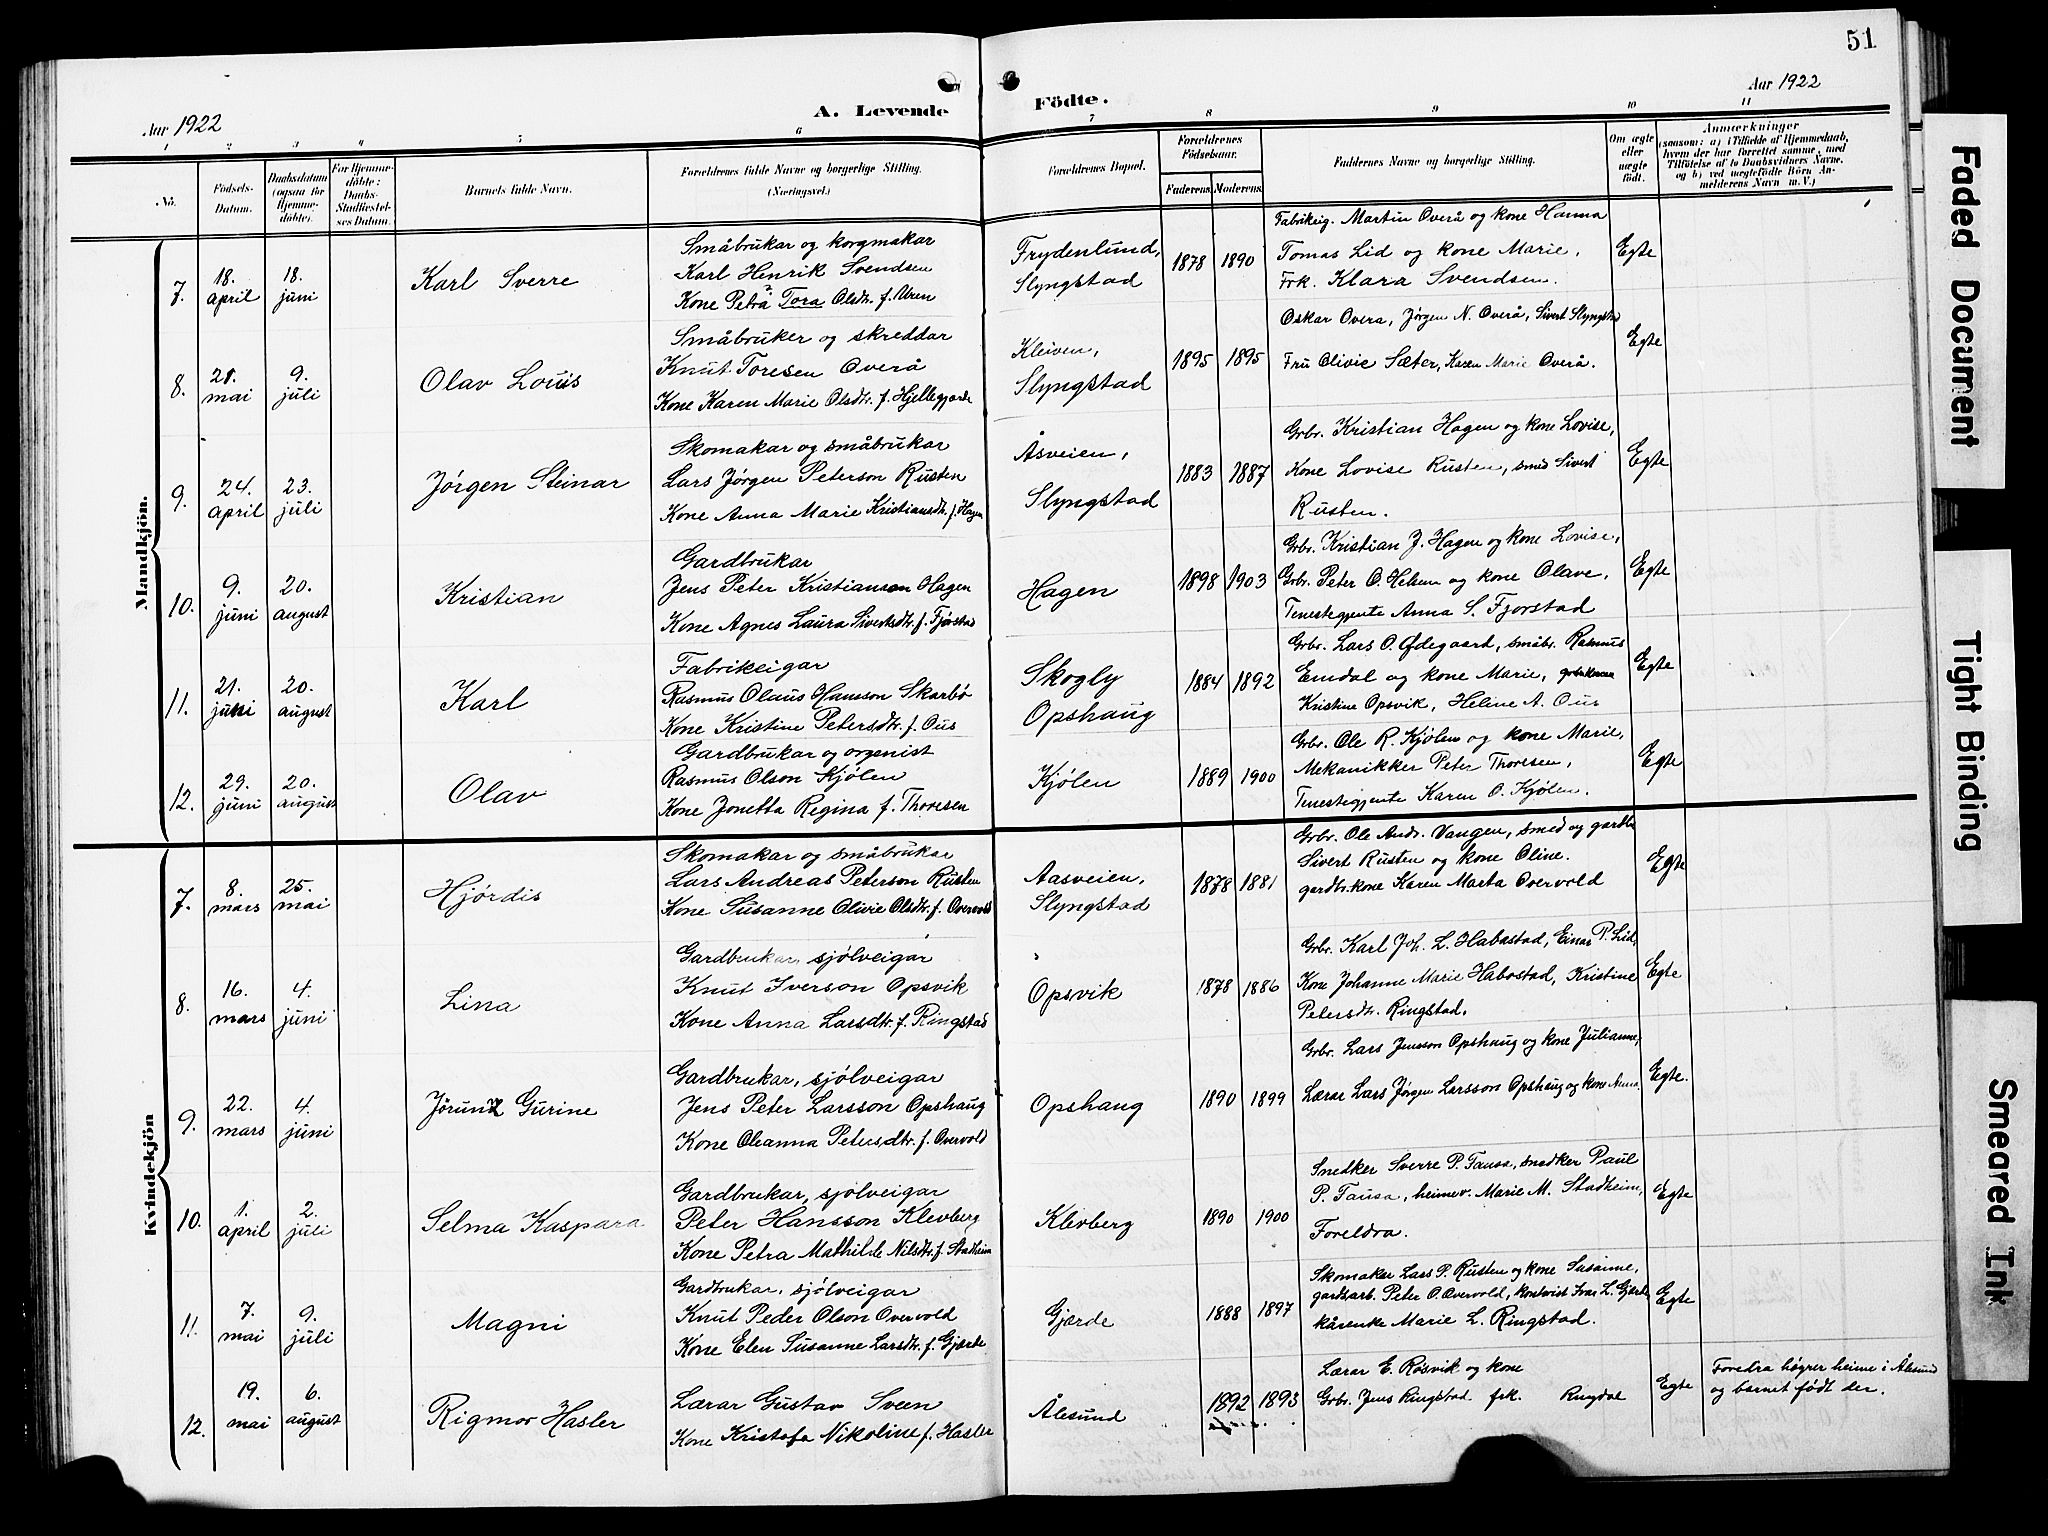 51
Aar 1922
A. Levende Födte.
Aar 1922
1 2 3 4 5 6 7 8 9 10 11
No.
Födsels-Datum.
Daabsdatum (ogsaa for Hjemmedöbte).
For Hjemmedöbte: Daabs-Stadfæstelses Datum.
Barnets fulde Navn.
Forældrenes fulde Navne og borgerlige Stilling.
(Næringsvei.)
Forældrenes Bopæl.
Forældrenes Födselsaar.
Faderens. Moderens.
Faddernes Navne og borgerlige Stilling.
Om ægte eller uægte født.
Anmærkninger
(saasom: a) i Tilfælde af Hjemmedaab, hvem der har forrettet samme, med Tilföielse af to Daabsvidners Navne, og b) ved uægtefödte Börn Anmelderens Navn m. V.)
Mandkjön.
7. 18. april 18. juni Karl Sverre
Småbrukar og korgmakar
Karl Henrik Svendsen
Kone Petra Tora Olsdtr. f. Uren
Frydenlund,
Slyngstad
1878 1890
Fabrikeig. Martin Overå og kone Hanna
Tomas Lid og kone Marie,
Frk. Klara Svendsen.
Egte
8. 21. mai 9. juli Olav Louis
Småbruker og skreddar
Knut Toresen Overå
Kone Karen Marie Olsdtr. f. Hjellegjerde
Kleiven,
Slyngstad
1895 1895
Oskar Overa, Jørgen N. Overå, Sivert Slyngstad
Fru Olivie Sæter, Karen Marie Overå.
Egte
9. 24. april 23. juli Jørgen Steinar
Skomakar og småbrukar
Lars Jørgen Peterson Rusten
Kone Anna Marie Kristiansdtr. f. Hagen
Åsveien,
Slyngstad
1883 1887
Grbr. Kristian Hagen og kone Lovise,
Kone Lovise Rusten, smed Sivert
Rusten.
Egte
10. 9. juni 20. august Kristian
Gardbrukar
Jens Peter Kristianson Hagen
Kone Agnes Laura Sivertsdtr. f. Fjørstad
Hagen
1898 1903
Grbr. Kristian J. Hagen og kone Lovise,
Grbr. Peter O. Helsem og kone Olave,
Tenestegjente Anna S. Fjørstad
Egte
11. 21. juni 20. august Karl
Fabrikeigar
Rasmus Olaus Hansson Skarbö
Kone Kristine Petersdtr. f. Ous
Skogly
Opshaug
1884 1892
Grbr. Lars O. Ødegaard, småbr. Rasmus
Emdal og kone Marie,
Kristine Opsvik, Heline A. Ous
Egte
12. 29. juni 20. august Olav
Gardbrukar og organist
Rasmus Olson Kjölen
Kone Jonetta Regina f. Thoresen
Kjølen
1889 1900
Grbr. Ole R. Kjölen og kone Marie,
Mekanikker Peter Thoresen,
Tenestegjente Karen O. Kjölen.
Egte
Kvindekjön
7. 8. mars 25. mai Hjördis
Skomakar og småbrukar
Lars Andreas Peterson Rusten
Kone Susanne Olivie Olsdtr. f. Overvold
Aasveien,
Slyngstad
1878 1881
Grbr. Ole Andr. Vangen, smed og gardbr
Sivert Rusten og kone Oline.
gardbr.kone Karen Marta Overvold
Egte
8. 16. mars 4. juni Lina
Gardbrukar, sjölveigar
Knut Iverson Opsvik
Kone Anna Larsdtr. f. Ringstad
Opsvik
1878 1886
Grbr. Karl Joh. L. Habostad, Einar P. Lid,
Kone Johanne Marie Habostad, Kristine
Petersdtr. Ringstad.
Egte
9. 22. mars 4. juni Jörunn Gurine
Gardbrukar, sjölveigar
Jens Peter Larsson Opshaug
Kone Oleanna Petersdtr. f. Overvold
Opshaug
1890 1899
Grbr. Lars Jensson Opshaug og kone Julianne,
Lærar Lars Jørgen Larsson Opshaug og kone Anna.
Egte.
10. 1. april 2. juli Selma Kaspara
Gardbrukar, sjölveigar
Peter Hansson Klevberg
Kone Petra Mathilde Nilsdtr. f. Stadheim
Klevberg
1890 1900
Snedker Sverre P. Tausa, snedker Paul
P. Tausa, heimev. Marie M. Stadheim,
Foreldra.
Egte
11. 7. mai 9. juli Magni
Gardbrukar, sjölveigar
Knut Peder Olson Overvold
Kone Elen Susanne Larsdtr. f. Gjærde
Gjærde
1888 1897
Skomaker Lars P. Rusten og kone Susanne,
gardsarb. Peter O. Overvold, Ivar L. Gjærde
kårenke Marie L. Ringstad.
Egte
12. 19. mai 6. august Rigmor Hasler
Lærar Gustav Sveen
Kone Kristofa Nikoline f. Hasler
Ålesund
1892 1893
Lærar E. Røsvik og kone
Grbr. Jens Ringstad frk. Ringdal
Egte
Foredra högrer heime i Ålesund
og barnet födt der.
Faded Document
Tight Binding
Smeared Ink